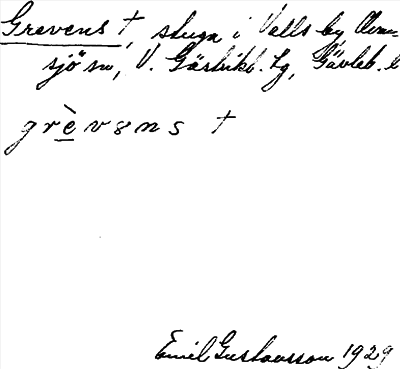 Grevens †, stuga i Valls by, Ovan-
sjö sn, V. Gästrikl. tg, Gävleb. l
grè̱vɜns †
Emil Gustavsson 1929